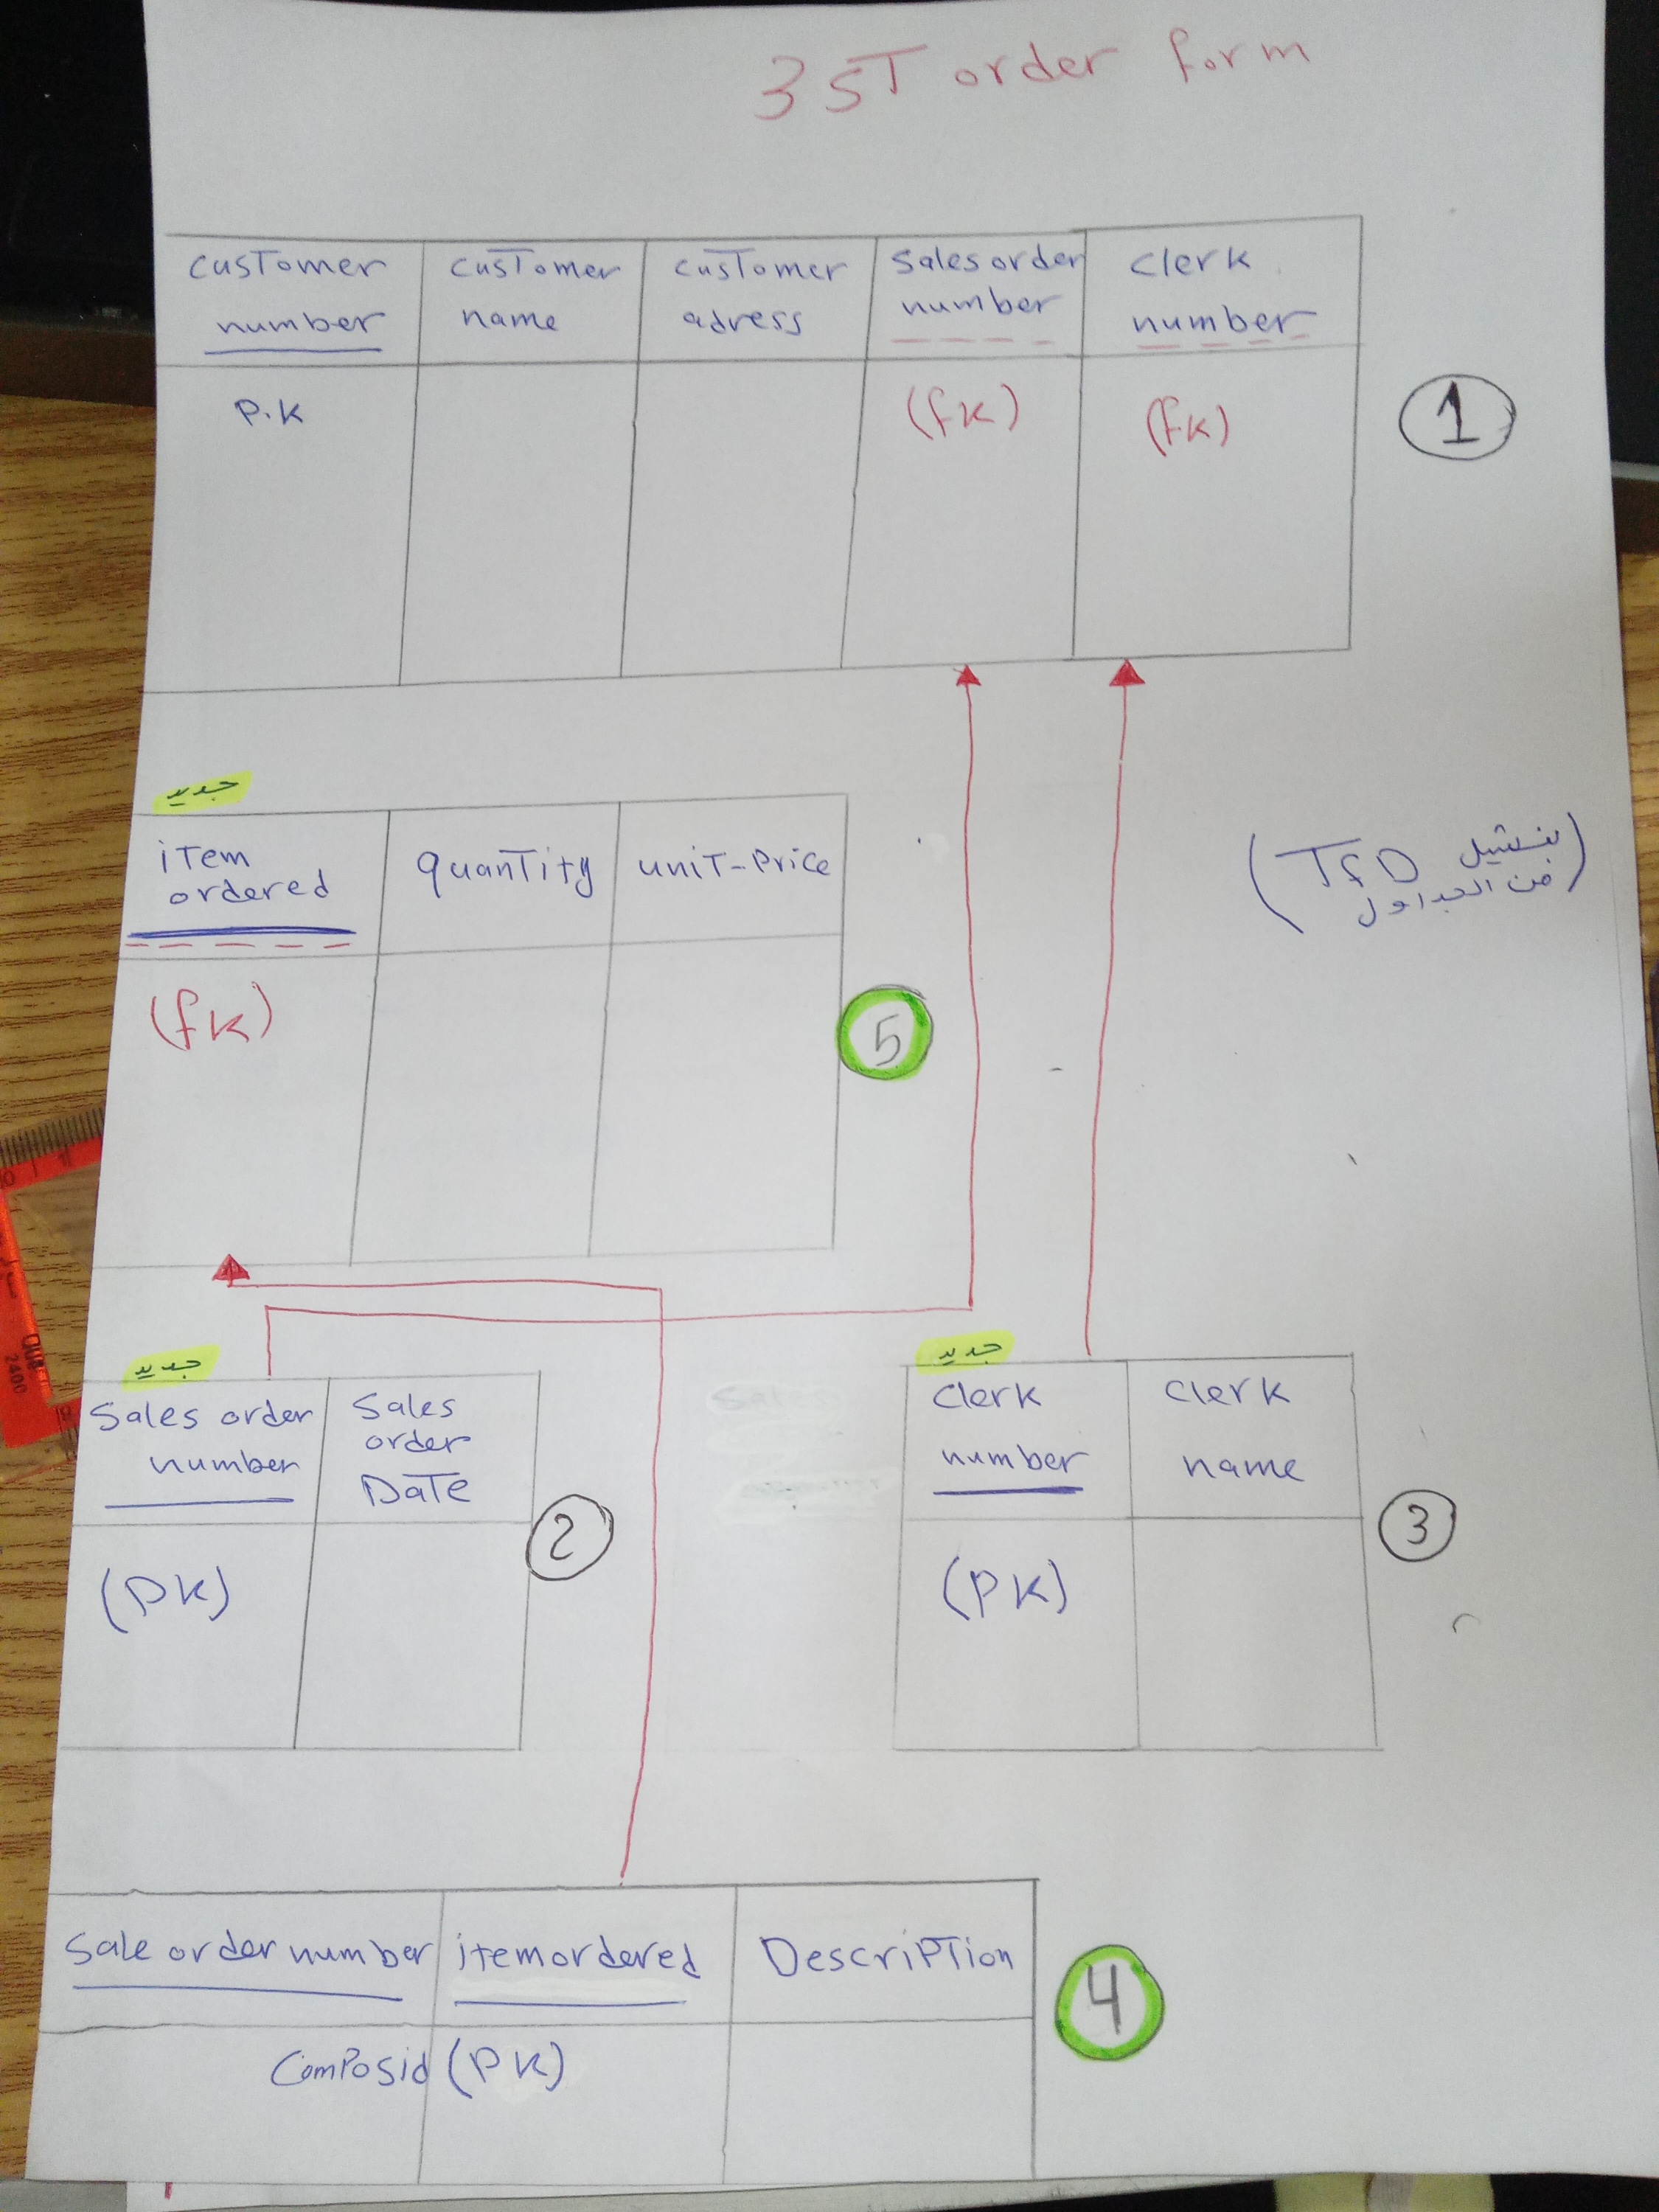 3 ST order form
customer number
customer name
customer adress
Sales order number
clerk number
P.K
(fk)
(fk)
1
جديد
item ordered
quantity
unit-Price
(fk)
5
(TfD بنشيل
من الجداول)
جديد
Sales order number
Sales order Date
(PK)
2
جديد
Clerk number
Clerk name
(PK)
3
Sale order number
item ordered
Description
Composid (PK)
4